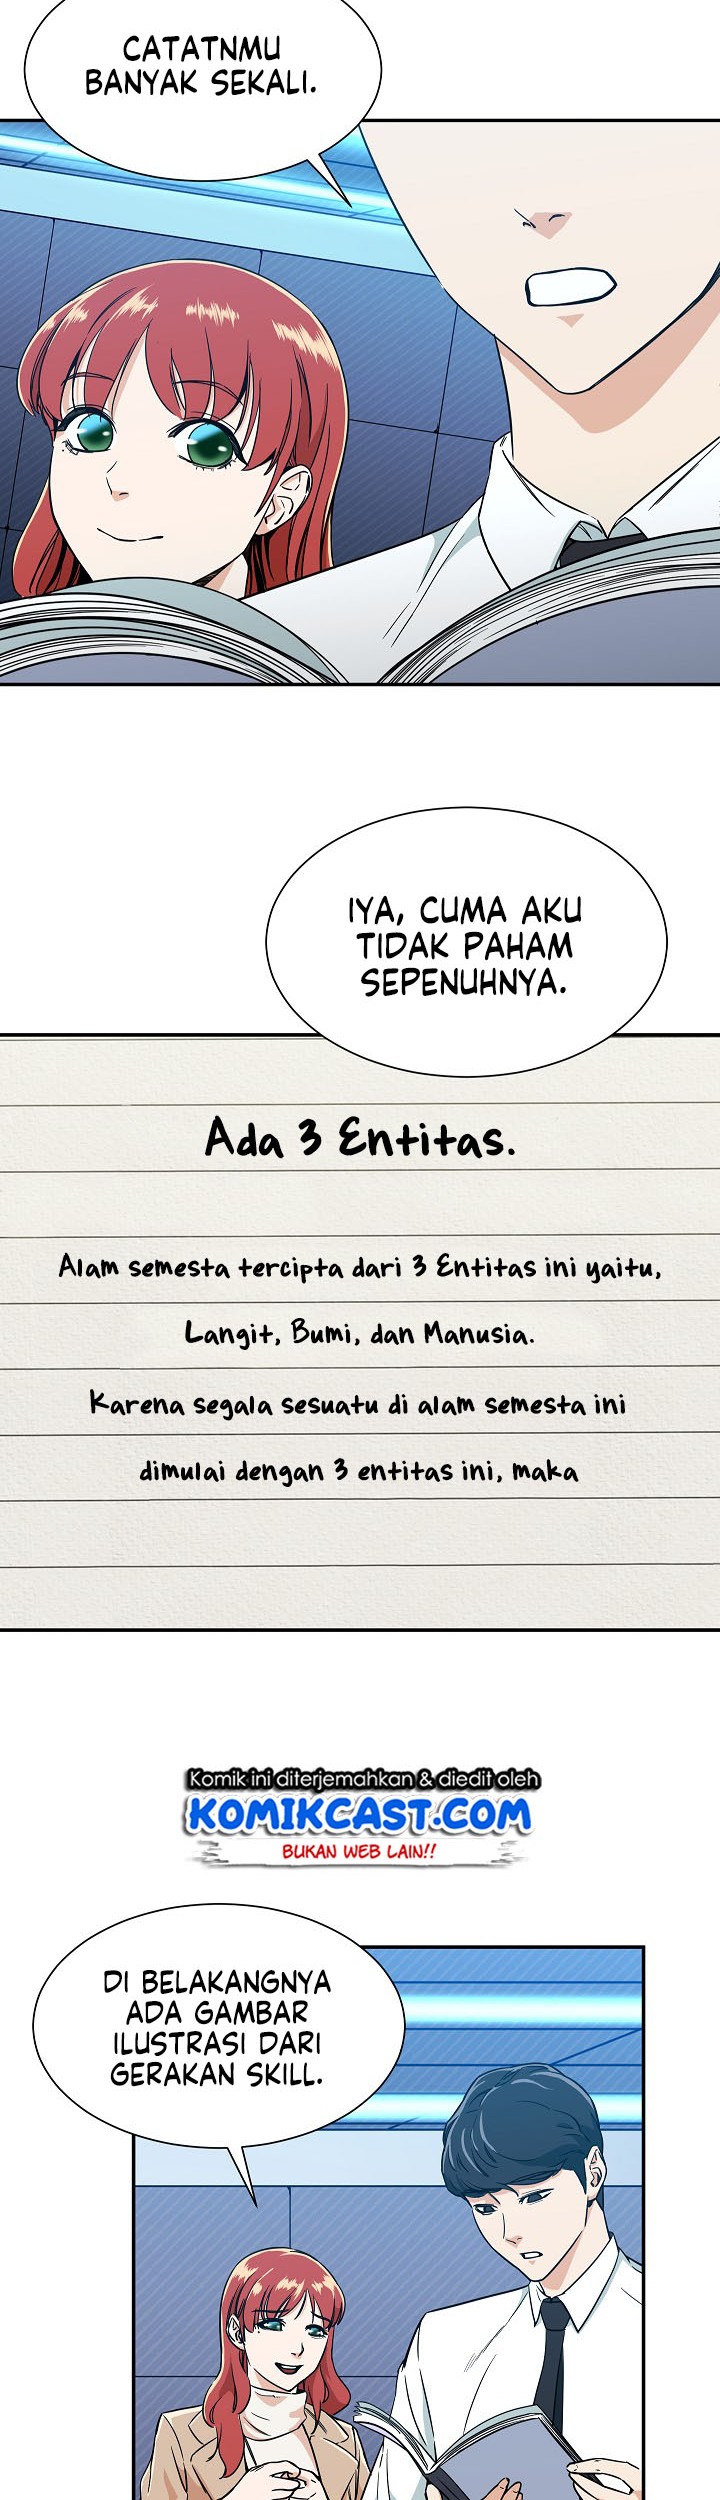 CATATNMU
BANYAK SEKALI.
IYA, CUMA AKU
TIDAK PAHAM
SEPENUHNYA.
Ada 3 Entitas.
Alam semesta tercipta dari 3 Entitas ini yaitu,
Langit, Bumi, dan Manusia.
Karena segala sesuatu di alam semesta ini
dimulai dengan 3 entitas ini, maka
Komik ini diterjemahkan & diedit oleh
KOMIKCAST.COM
BUKAN WEB LAIN!!
DI BELAKANGNYA
ADA GAMBAR
ILUSTRASI DARI
GERAKAN SKILL.